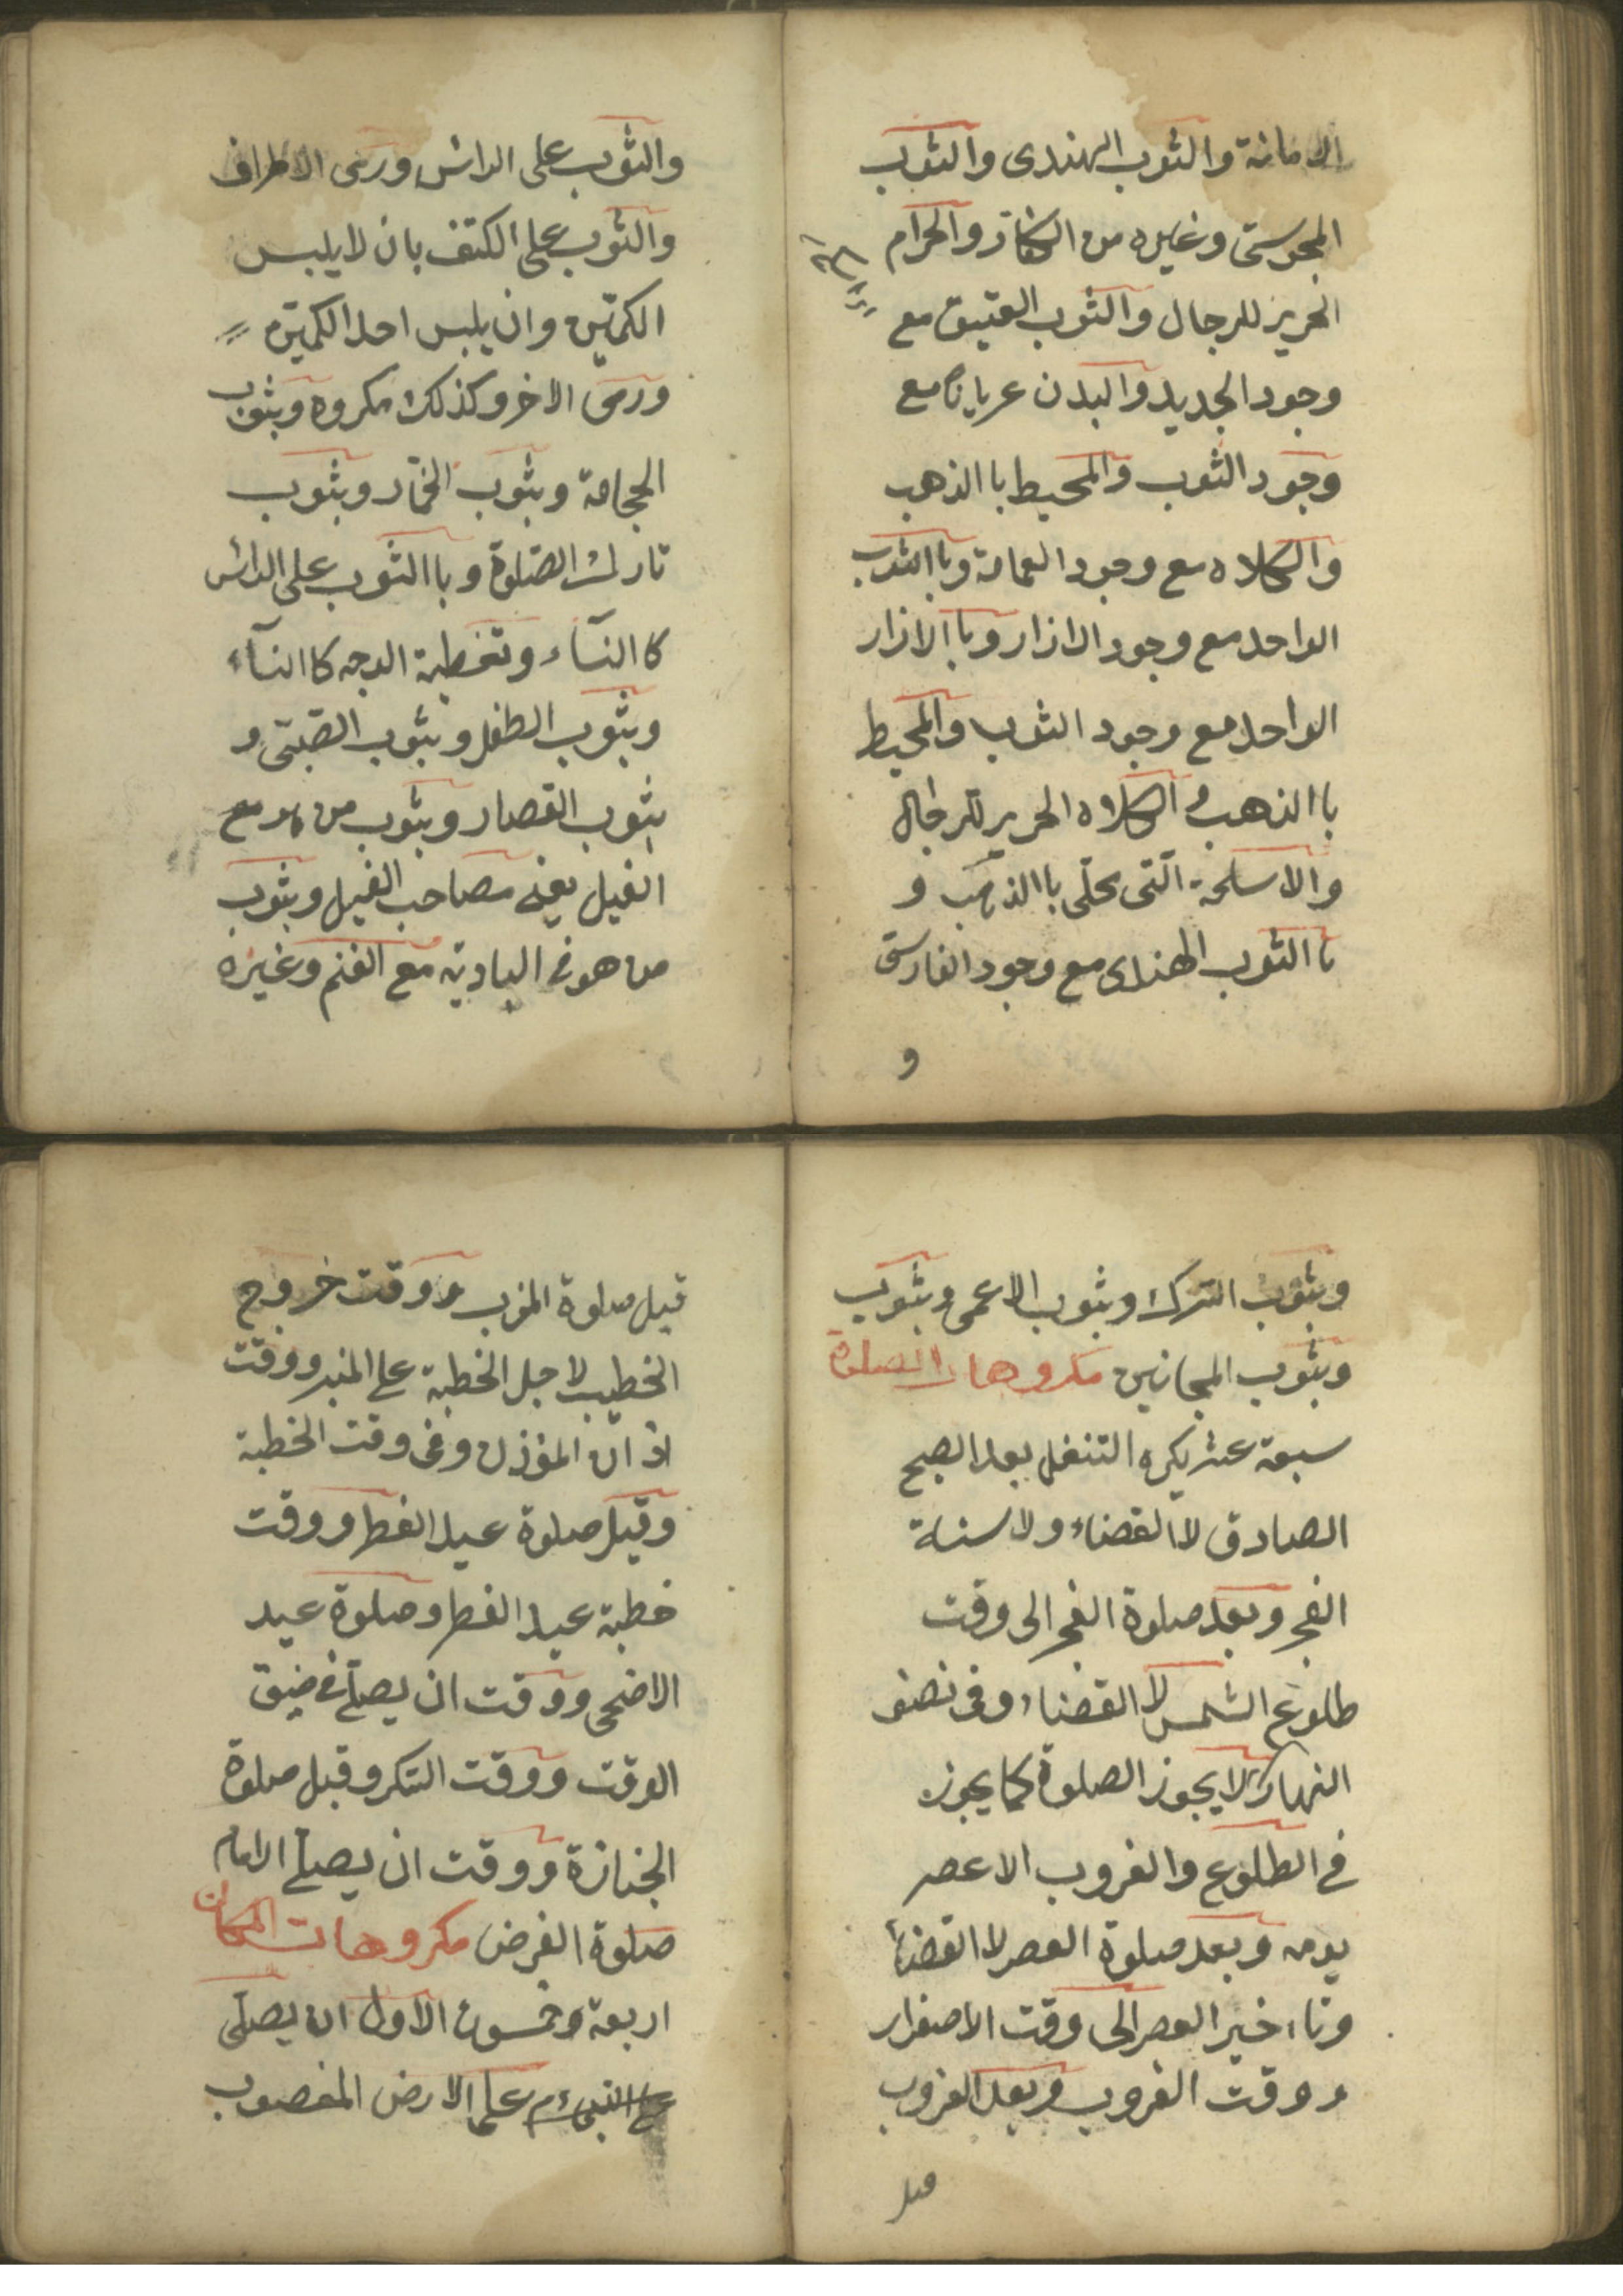 الامانة والثوب الهندى والثوب
المجوسى وغيره من الكفار والحرام
الحرير للرجال والثوب العتيق مع
وجود الجديد والبدن عريانا مع
وجود الثوب والمحيط باالذهب
والكلاه مع وجود العمامة وباالثوب
الواحد مع وجود الازار وباالازار
الواحد مع وجود الثوب والمحيط
باالذهب والكلاه الحرير للرجال
والاسلحة التى يحلى باالذهب و
باالثوب الهندى مع وجود الفارسى
و
والثوب على الراس ورمى الاطراف
والثوب على الكتف بان لا يلبس
الكمين وان يلبس احد الكمين
ورمى الاخر وكذلك مكروه وبثوب
الحجامة وبثوب الخمار وبثوب
تارك الصلوة وباالثوب على الراس
كاالنسآء وتغطية الوجه كاالنسآء
وبثوب الطفل وبثوب الصبى و
بثوب القصار وبثوب من هو مع
الفيل يعنے مصاحب الفيل وبثوب
من هو فى البادية مع الغنم وغيره
وبثوب الترك وبثوب الاعمى وبثوب
وبثوب المجانين مكروهات الصلوة
سبعة عشر يكره التنفل بعد الصبح
الصادق لا القضاء ولا سنة
الفجر وبعد صلوة الفجر الى وقت
طلوع الشمس لا القضاء وفى نصف
النهار لا يجوز الصلوة كما يجوز
فى الطلوع والغروب الا عصر
يومه وبعد صلوة العصر لا القضاء
وتاءخير العصر الى وقت الاصفرار
ووقت الغروب وبعد الغروب
قبل
قبل صلوة المغرب ووقت خروج
الخطيب لاجل الخطبة على المنبر ووقت
اذان المؤذن وفى وقت الخطبة
وقبل صلوة عيد الفطر ووقت
خطبة عيد الفطر وصلوة عيد
الاضحى ووقت ان يصلے فى ضيق
الوقت ووقت السكر وقبل صلوة
الجنازة ووقت ان يصلے الامام
صلوة الفرض مكروهات المكان
اربعة وخمسون الاول ان يصلى
على الارض المغصوب